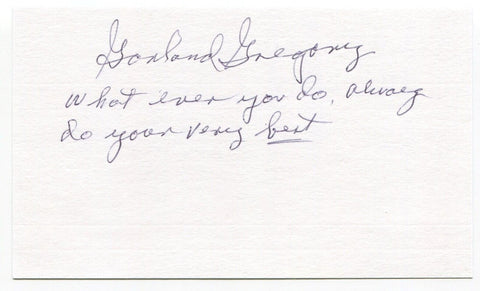 Garland Gregory
what ever you do, always
do your very best